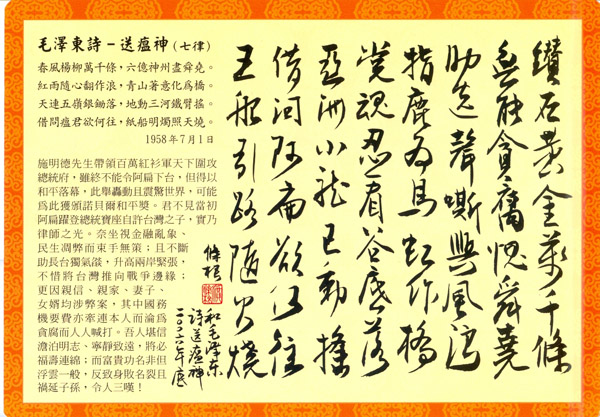 毛澤東詩－送瘟神（七律）
春風楊柳萬千條，六億神州盡舜堯。
紅雨隨心翻作浪，青山著意化為橋。
天連五嶺銀鋤落，地動三河鐵臂搖。
借問瘟君欲何往，紙船明燭照天燒。
1958年7月1日
施明德先生帶領百萬紅衫軍天下圍攻
總統府，雖終不能令阿扁下台，但得以
和平落幕，此舉轟動且震驚世界，可能
為此獲頒諾貝爾和平奬。君不見當初
阿扁躍登總統寶座自許台灣之子，實乃
律師之光。奈坐視金融亂象、
民生凋弊而束手無策；且不斷
助長台獨氣燄，升高兩岸緊張，
不惜將台灣推向戰爭邊緣；
更因親信、親家、妻子、
女婿均涉弊案，其中國務
機要費亦牽連本人而淪為
貪腐而人人喊打。吾人堪信
澹泊明志、寧靜致遠，將必
福壽連綿；而富貴功名非但
浮雲一般，反致身敗名裂且
禍延子孫，令人三嘆！
鑽石黃金萬千條
無能貪腐愧舜堯
助選聲嘶興風浪
指鹿為馬虹作橋
黨魂忍看谷底落
亞洲小龍已動搖
借問阿扁欲何往
王船引路隨火燒
條根
和毛澤東
詩送瘟神
二〇〇六年底